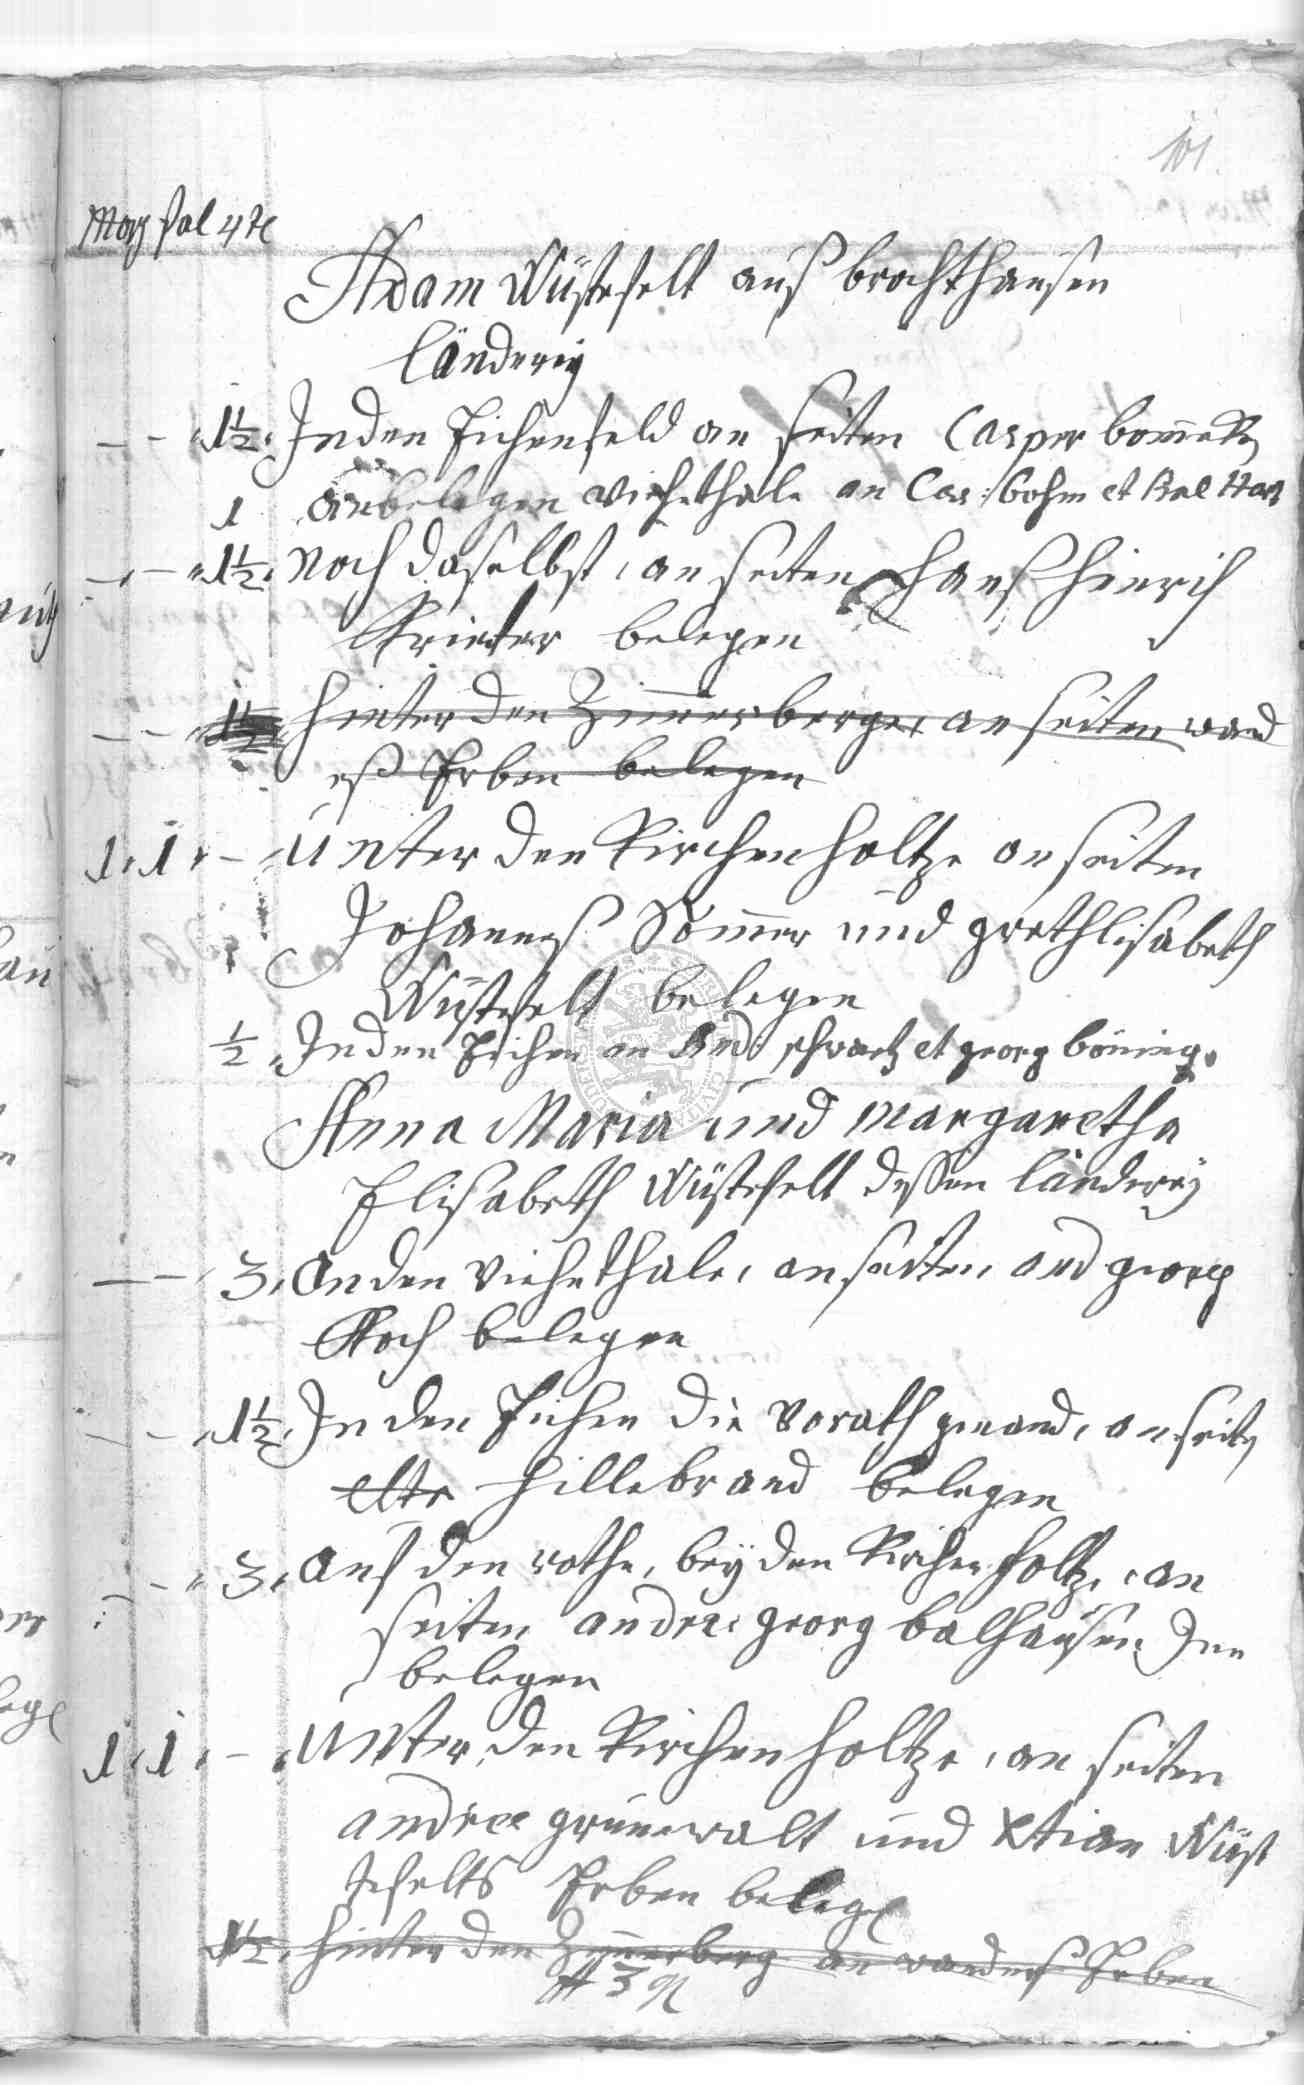 101
Morg sal 4tel
Adam Wüstefelt auß brochthausen
länderey
1½ In den Eichenfeld an seiten Casper
1 an belegen Viehethale an Cas: bohm et
1½ Noch daselbst, an seiten Hanß Hinrich
Krieter belegen
1½ Hinter den Zimmerberge, an seiten wand
eß Erben belegen
1, 1, – Unter den Kirchenholtze an seiten
Johannes Sommer und grethlisabeth
Wüstefelt belegen
½ In den Eichen an And: schwartz et georg böning.
Anna Maria und Margaretha
Elisabeth Wüstefelt dessen länderey
3, An den Viehethale, an seiten and georg
Koch belegen
1½, In den Eichen die Vorath genand, an seiten
Hillebrand belegen
3, Auf den rothe, bey den Kirchen holtze, an
seiten andrea georg balhausen
belegen
1, 1, – Unter den Kirchen holtze, an seiten
andrea grunewalt und Xtian Wüst
efelts Erben beleg
1½, Hinter den Zimmerberg an wandeß Erben
3